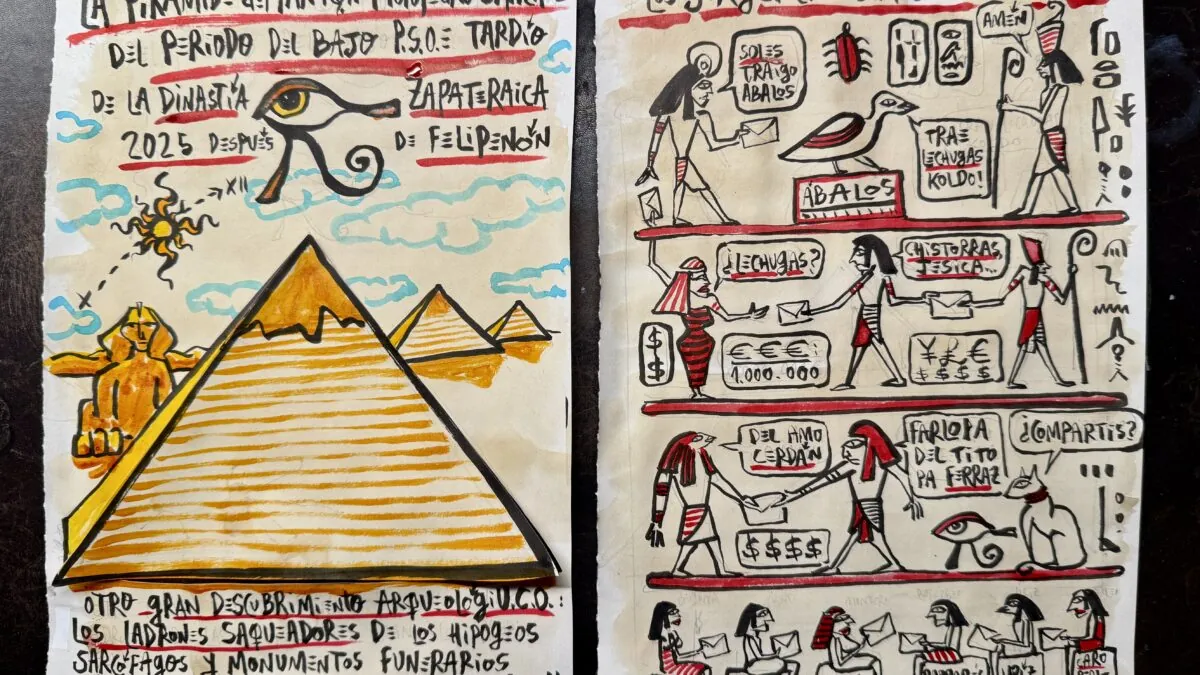 DEL PERIODO DEL BAJO P.S.O.E TARDÍO
DE LA DINASTÍA ZAPATERAICA
2025 DESPUÉS DE FELIPENÓN
XII
X
OTRO GRAN DESCUBRIMIENTO ARQUEOLÓGI U.C.O.:
LOS LADRONES SAQUEADORES DE LOS HIPOGEOS
SARCÓFAGOS Y MONUMENTOS FUNERARIOS
SOLES
TRAIGO
ÁBALOS
AMÉN
TRAE
LECHUGAS
KOLDO!
ÁBALOS
¿LECHUGAS?
CHISTORRAS,
JESICA...
$
$
€ € €
1.000.000
¥ £ €
$ $ $ $
DEL AMO
CERDÁN
FARLOPA
DEL TITO
PA FERRAZ
¿COMPARTÍS?
$ $ $ $